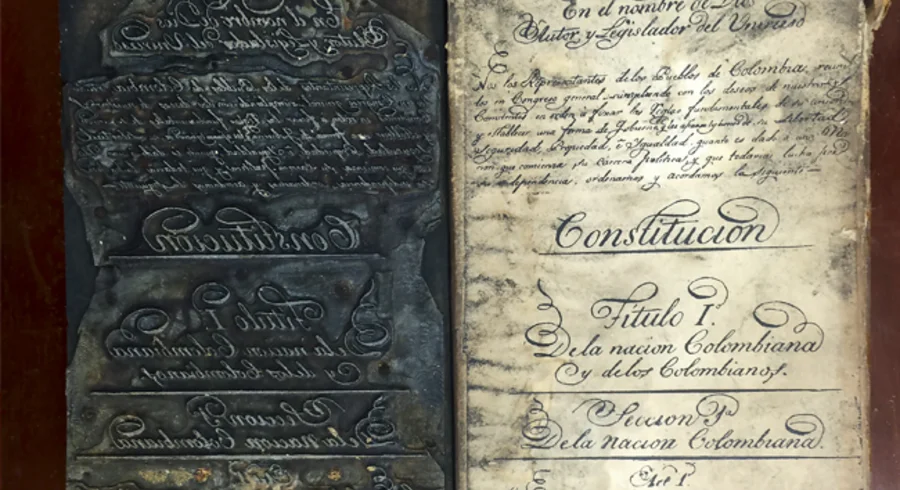 En el nombre de Dios
Autor y Legislador del Universo
Nos los Representantes de los Pueblos de Colombia, reuni
dos en Congreso general, cumpliendo con los deseos de nuestros
Comitentes en orden á fixar las reglas fundamentales de su
y establecer una forma de Gobierno que su libertad
seguridad, Propiedad, é Igualdad, quanto es dado á una Na
cion que comienza su carrera politica, y que todavia lucha por
su independencia, ordenamos y acordamos la siguiente
Constitucion
Titulo I.
De la nacion Colombiana
y de los Colombianos.
Seccion I
De la nacion Colombiana.
Art 1.